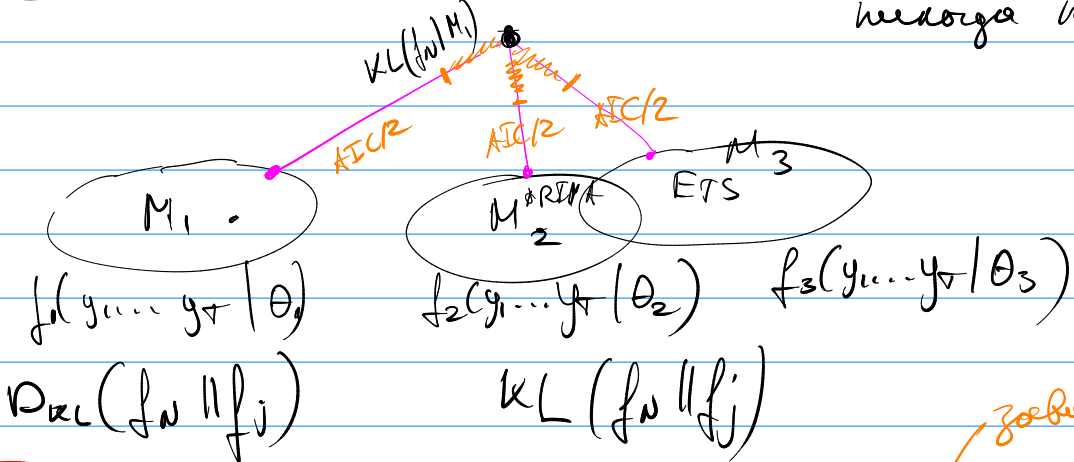 никогда
KL(f_N | M_1)
AIC/2 AIC/2 AIC/2
M_1 M_2 ARIMA ETS M_3
f_1(y_1,... y_T | θ_1) f_2(y_1...y_T | θ_2) f_3(y_1...y_T | θ_3)
D_KL(f_N || f_j) KL(f_N || f_j)